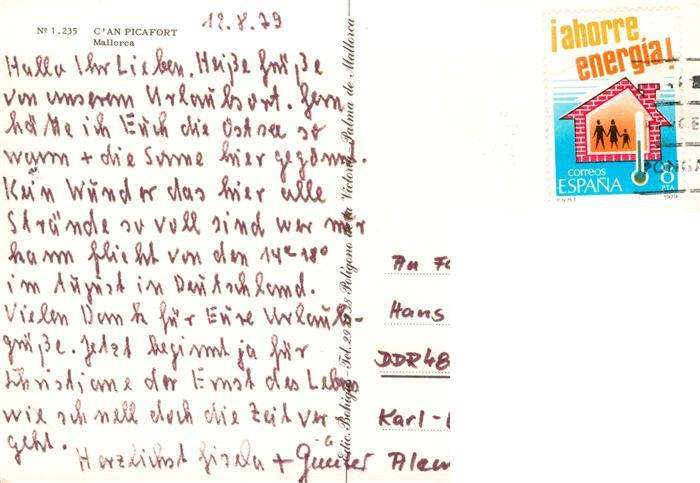 Nº 1.235 C'AN PICAFORT
Mallorca
12.8.79
Hallo Ihr Lieben. Heiße Grüße
von unserem Urlaubsort. Gern
hätte ich Euch die Ostsee so
warm + die Sonne hier gegönnt.
Kein Wunder das hier alle
Strände so voll sind wer nur
kann flieht von den 14°-18°
im August in Deutschland.
Vielen Dank für Eure Urlaubs-
grüße. Jetzt beginnt ja für
Christiane der Ernst des Lebens
wie schnell doch die Zeit ver
geht.
Herzlichst Gisela + Günter
Palma de Mallorca
¡ahorre
energía!
correos
ESPAÑA
8
PTA
F.N.M.T.
1979
An Fa
Hans
DDR 48
Karl-